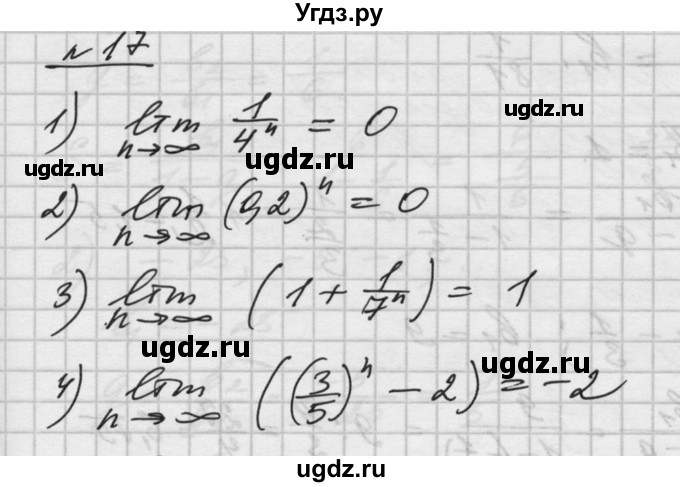 Угдз.ру
№17
1) lim n→∞ 1/4ⁿ = 0
ugdz.ru ugdz.ru
2) lim n→∞ (0,2)ⁿ = 0
3) lim n→∞ (1 + 1/7ⁿ) = 1
ugdz.ru ugdz.ru
4) lim n→∞ ((3/5)ⁿ - 2) = -2
ugdz.ru